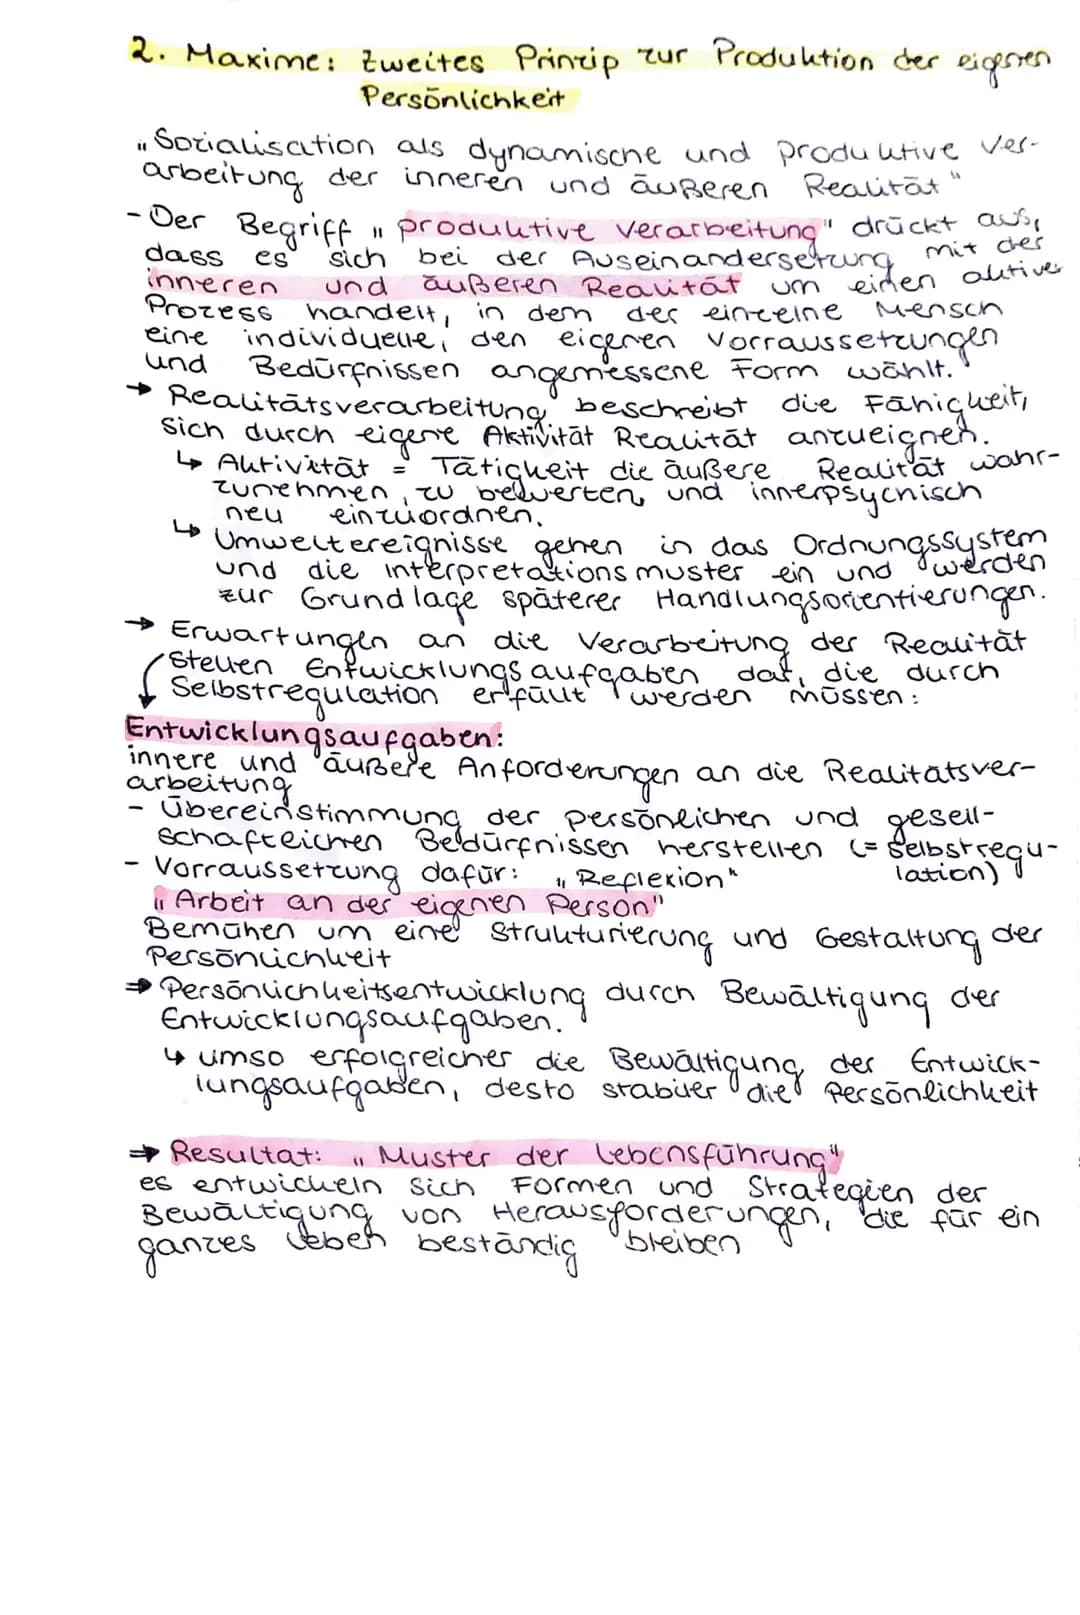 2. Maxime: Zweites Prinzip zur Produktion der eigenen
Persönlichkeit
„Sozialisation als dynamische und produktive Ver-
arbeitung der inneren und äußeren Realität"
- Der Begriff „produktive Verarbeitung" drückt aus,
dass es sich bei der Auseinandersetzung mit der
inneren und äußeren Realität um einen aktiven
Prozess handelt, in dem der einzelne Mensch
eine individuelle, den eigenen Vorraussetzungen
und Bedürfnissen angemessene Form wählt.
→ Realitätsverarbeitung beschreibt die Fähigkeit,
sich durch eigene Aktivität Realität anzueignen.
↳ Aktivität = Tätigkeit die äußere Realität wahr-
zunehmen, zu bewerten, und innerpsychisch
neu einzuordnen.
↳ Umweltereignisse gehen in das Ordnungssystem
und die interpretationsmuster ein und werden
zur Grundlage späterer Handlungsorientierungen.
→ Erwartungen an die Verarbeitung der Realität
stellen Entwicklungsaufgaben dar, die durch
Selbstregulation erfüllt werden müssen:
Entwicklungsaufgaben:
innere und äußere Anforderungen an die Realitätsver-
arbeitung
- Übereinstimmung der persönlichen und gesell-
schafteichen Bedürfnissen herstellen (= Selbstregu-
lation)
- Vorraussetzung dafür: „Reflexion"
„Arbeit an der eigenen Person"
Bemühen um eine Strukturierung und Gestaltung der
Persönlichkeit
⇒ Persönlichkeitsentwicklung durch Bewältigung der
Entwicklungsaufgaben.
↳ umso erfolgreicher die Bewältigung der Entwick-
lungsaufgaben, desto stabiler die Persönlichkeit
⇒ Resultat: „Muster der Lebensführung"
es entwickeln sich Formen und Strategien der
Bewältigung von Herausforderungen, die für ein
ganzes Leben beständig bleiben